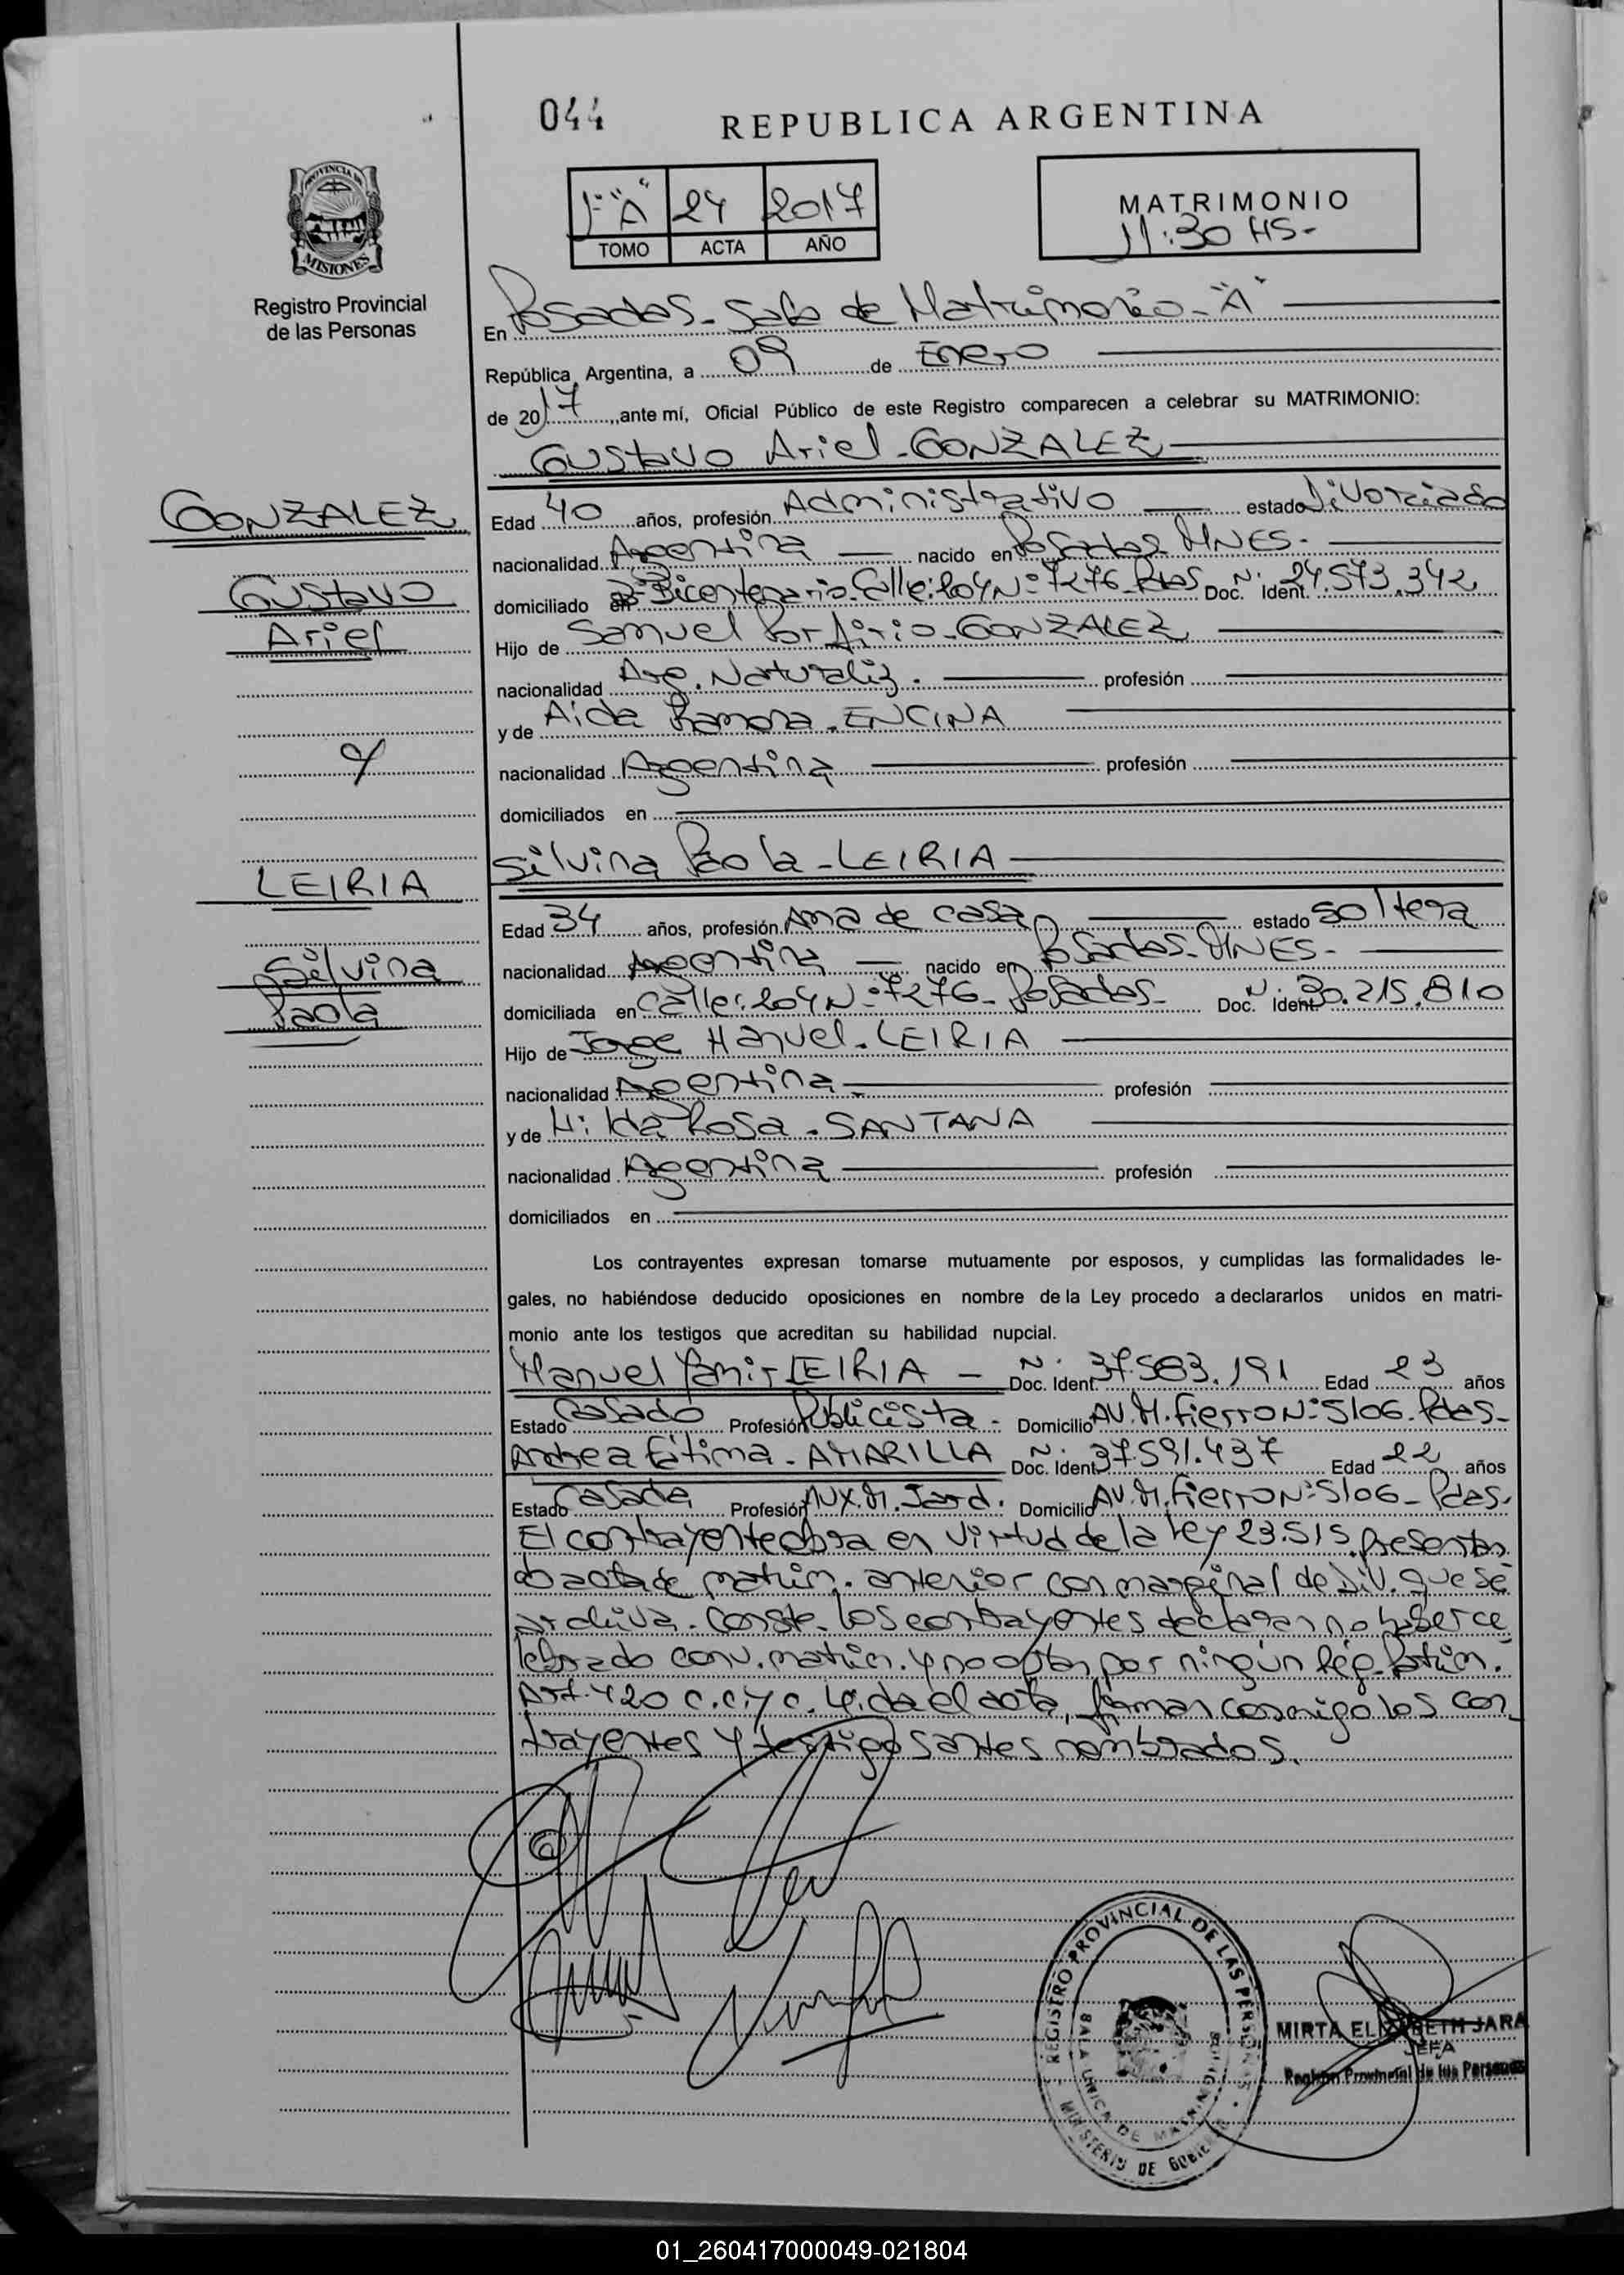 044
REPUBLICA ARGENTINA
PROVINCIA DE
MISIONES
Registro Provincial
de las Personas
1º"A" 24 2017
TOMO ACTA AÑO
MATRIMONIO
11:30 HS-
En Posadas - Sala de Matrimonio - "A"
República Argentina, a 09 de Enero
de 2017, ante mí, Oficial Público de este Registro comparecen a celebrar su MATRIMONIO:
Gustavo Ariel - GONZALEZ
GONZALEZ
Gustavo
Ariel
Edad 40 años, profesión Administrativo estado Divorciado
nacionalidad Argentina nacido en Posadas MNES.
domiciliado en Bº Bicentenario - Calle: 204 Nº 7276 - Pdas Doc. Ident. Nº 24.573.342
Hijo de Samuel Porfirio - GONZALEZ
nacionalidad Arg. Naturaliz. profesión
y de Aida Ramona - ENCINA
nacionalidad Argentina profesión
domiciliados en
y
Silvina Paola - LEIRIA
LEIRIA
Silvina
Paola
Edad 34 años, profesión Ama de casa estado Soltera
nacionalidad Argentina nacido en Posadas - MNES -
domiciliada en Calle: 204 Nº 7276 - Posadas - Doc. Ident. Nº 30.215.810
Hijo de Jorge Manuel - LEIRIA
nacionalidad Argentina profesión
y de Hilda Rosa - SANTANA
nacionalidad Argentina profesión
domiciliados en
Los contrayentes expresan tomarse mutuamente por esposos, y cumplidas las formalidades le-
gales, no habiéndose deducido oposiciones en nombre de la Ley procedo a declararlos unidos en matri-
monio ante los testigos que acreditan su habilidad nupcial.
Manuel Yamir LEIRIA - Doc. Ident. Nº 37.583.191 Edad 23 años
Estado Casado Profesión Publicista - Domicilio AV. M. Fierro Nº 5106 - Pdas -
Andrea Fátima - AMARILLA Doc. Ident. Nº 37.591.437 Edad 22 años
Estado Casada Profesión Aux. M. Jard. Domicilio AV. M. Fierro Nº 5106 - Pdas.
El contrayente obra en virtud de la Ley 23.515 presentan
do acta de matrim. anterior con marginal de Div. que se
archiva. Conste. Los contrayentes declaran no haber ce
lebrado conv. matrim. y no optan por ningún Rég. Patrim.
Art. 420 c. c. y c. Leída el acta, firman conmigo los con
trayentes y testigos antes nombrados.
REGISTRO PROVINCIAL DE LAS PERSONAS
MINISTERIO DE GOBIERNO
SALA UNICA DE
MIRTA ELIZABETH JARA
JEFA
Registro Provincial de las Personas
01_260417000049-021804